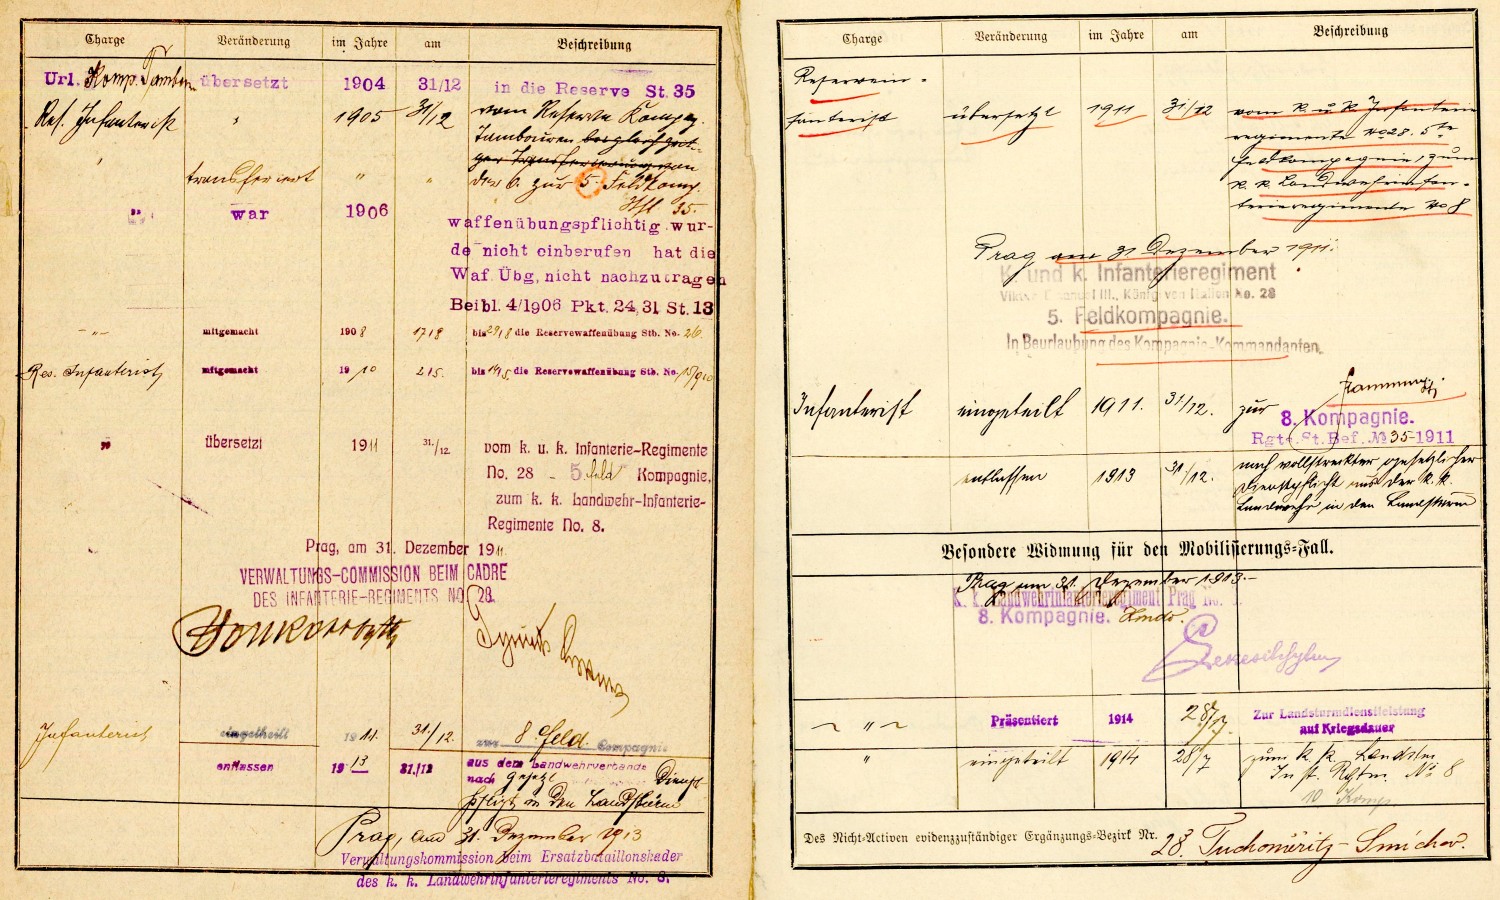 Charge Veränderung im Jahre am Beschreibung
Url. Komp. Tambour übersetzt 1904 31/12 in die Reserve St. 35
Res. Infanterist " 1905 31/12 vom Reserve Komp.
Tambouren
" transferiert " " der 6. zur 5. Feldkomp.
35.
" war 1906 waffenübungspflichtig wur-
de nicht einberufen hat die
Waf. Übg, nicht nachzutragen
Beibl. 4/1906 Pkt. 24, 31 St. 13
-"- mitgemacht 1908 17/8 bis 29/8 die Reservewaffenübung Stb. No. 26
Res. Infanterist mitgemacht 1910 2/5. bis 14/5. die Reservewaffenübung Stb. No. 15/910
" übersetzt 1911 31./12 vom k. u. k. Infanterie-Regimente
No. 28 - 5. Feld Kompagnie,
zum k. k. Landwehr-Infanterie-
Regimente No. 8.
Prag, am 31. Dezember 1911
VERWALTUNGS-COMMISSION BEIM CADRE
DES INFANTERIE-REGIMENTS NO. 28.
Infanterist eingetheilt 1911. 31./12. zur 8 Feld Compagnie
entlassen 1913 31./12 aus dem Landwehrverbande
nach gesetzl Dienst-
pflicht in den Landsturm
Prag, am 31. Dezember 1913
Verwaltungskommission beim Ersatzbataillonskader
des k. k. Landwehrinfanterieregiments No. 8.
Charge Veränderung im Jahre am Beschreibung
Reservein-
fanterist übersetzt 1911 31/12 vom k. u. k. Infanterie
regimente No 28. 5te
Feldkompagnie, zum
k. k. Landwehrinfan-
terieregimente No 8
Prag am 31 Dezember 1911.
K. und k. Infanterieregiment
Viktor Emanuel III., König von Italien No. 28
5. Feldkompagnie.
In Beurlaubung des Kompagnie-Kommandanten.
Infanterist eingeteilt 1911. 31/12. zur
8. Kompagnie.
Rgts. St. Bef. № 35-1911
entlassen 1913 31./12. nach vollstreckter gesetzlicher
Dienstpflicht aus der k. k.
Landwehr in den Landsturm
Besondere Widmung für den Mobilisierungs-Fall.
Prag am 31. Dezember 1913.-
K. k. Landwehrinfanterieregiment Prag No. 8.
8. Kompagnie.
~ " ~ Präsentiert 1914 28/7. Zur Landsturmdienstleistung
auf Kriegsdauer
" eingeteilt 1914 28/7 zum k. k. Landstm.
Inft. Rgtm. No 8
10 Komp
Des Nicht-Activen evidenzzuständiger Ergänzungs-Bezirk Nr. 28. Tuchoměřitz - Smichov.